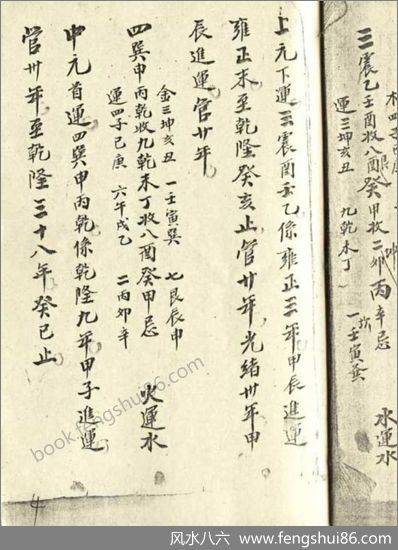 三震乙壬酉收八癸甲收二郊丙辛忌
水運水
木四子己庚
運三坤亥丑 九乾未丁 一壬寅巽
上元下運三震酉壬乙係雍正三年甲辰進運
雍正末至乾隆癸亥止管廿年光緒卅年甲
辰進運管廿年
四巽申丙乾收九乾未丁收八酉癸甲忌 火運水
金三坤亥丑 一壬寅巽 七艮辰申
運四子己庚 六午戊乙 二丙郊辛
中元首運四巽申丙乾係乾隆九年甲子進運
管卅年至乾隆三十八年癸巳止
4
book.fengshui86.com
风水八六 - www.fengshui86.com